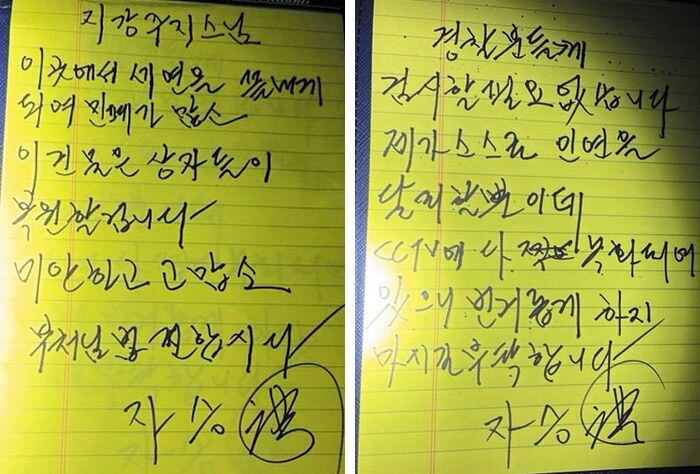 지강주지스님
이곳에서 세연을 끝내게
되어 민폐가 많소
이 건물은 상자들이
복원할겁니다
미안하고 고맙소
부처님법 전합시다
자승
경찰분들께
검시할 필요 없습니다
제가 스스로 인연을
달리할뿐이데
CCTV에 다 녹화되어
있으니 번거롭게 하지
마시길 부탁합니다
자승